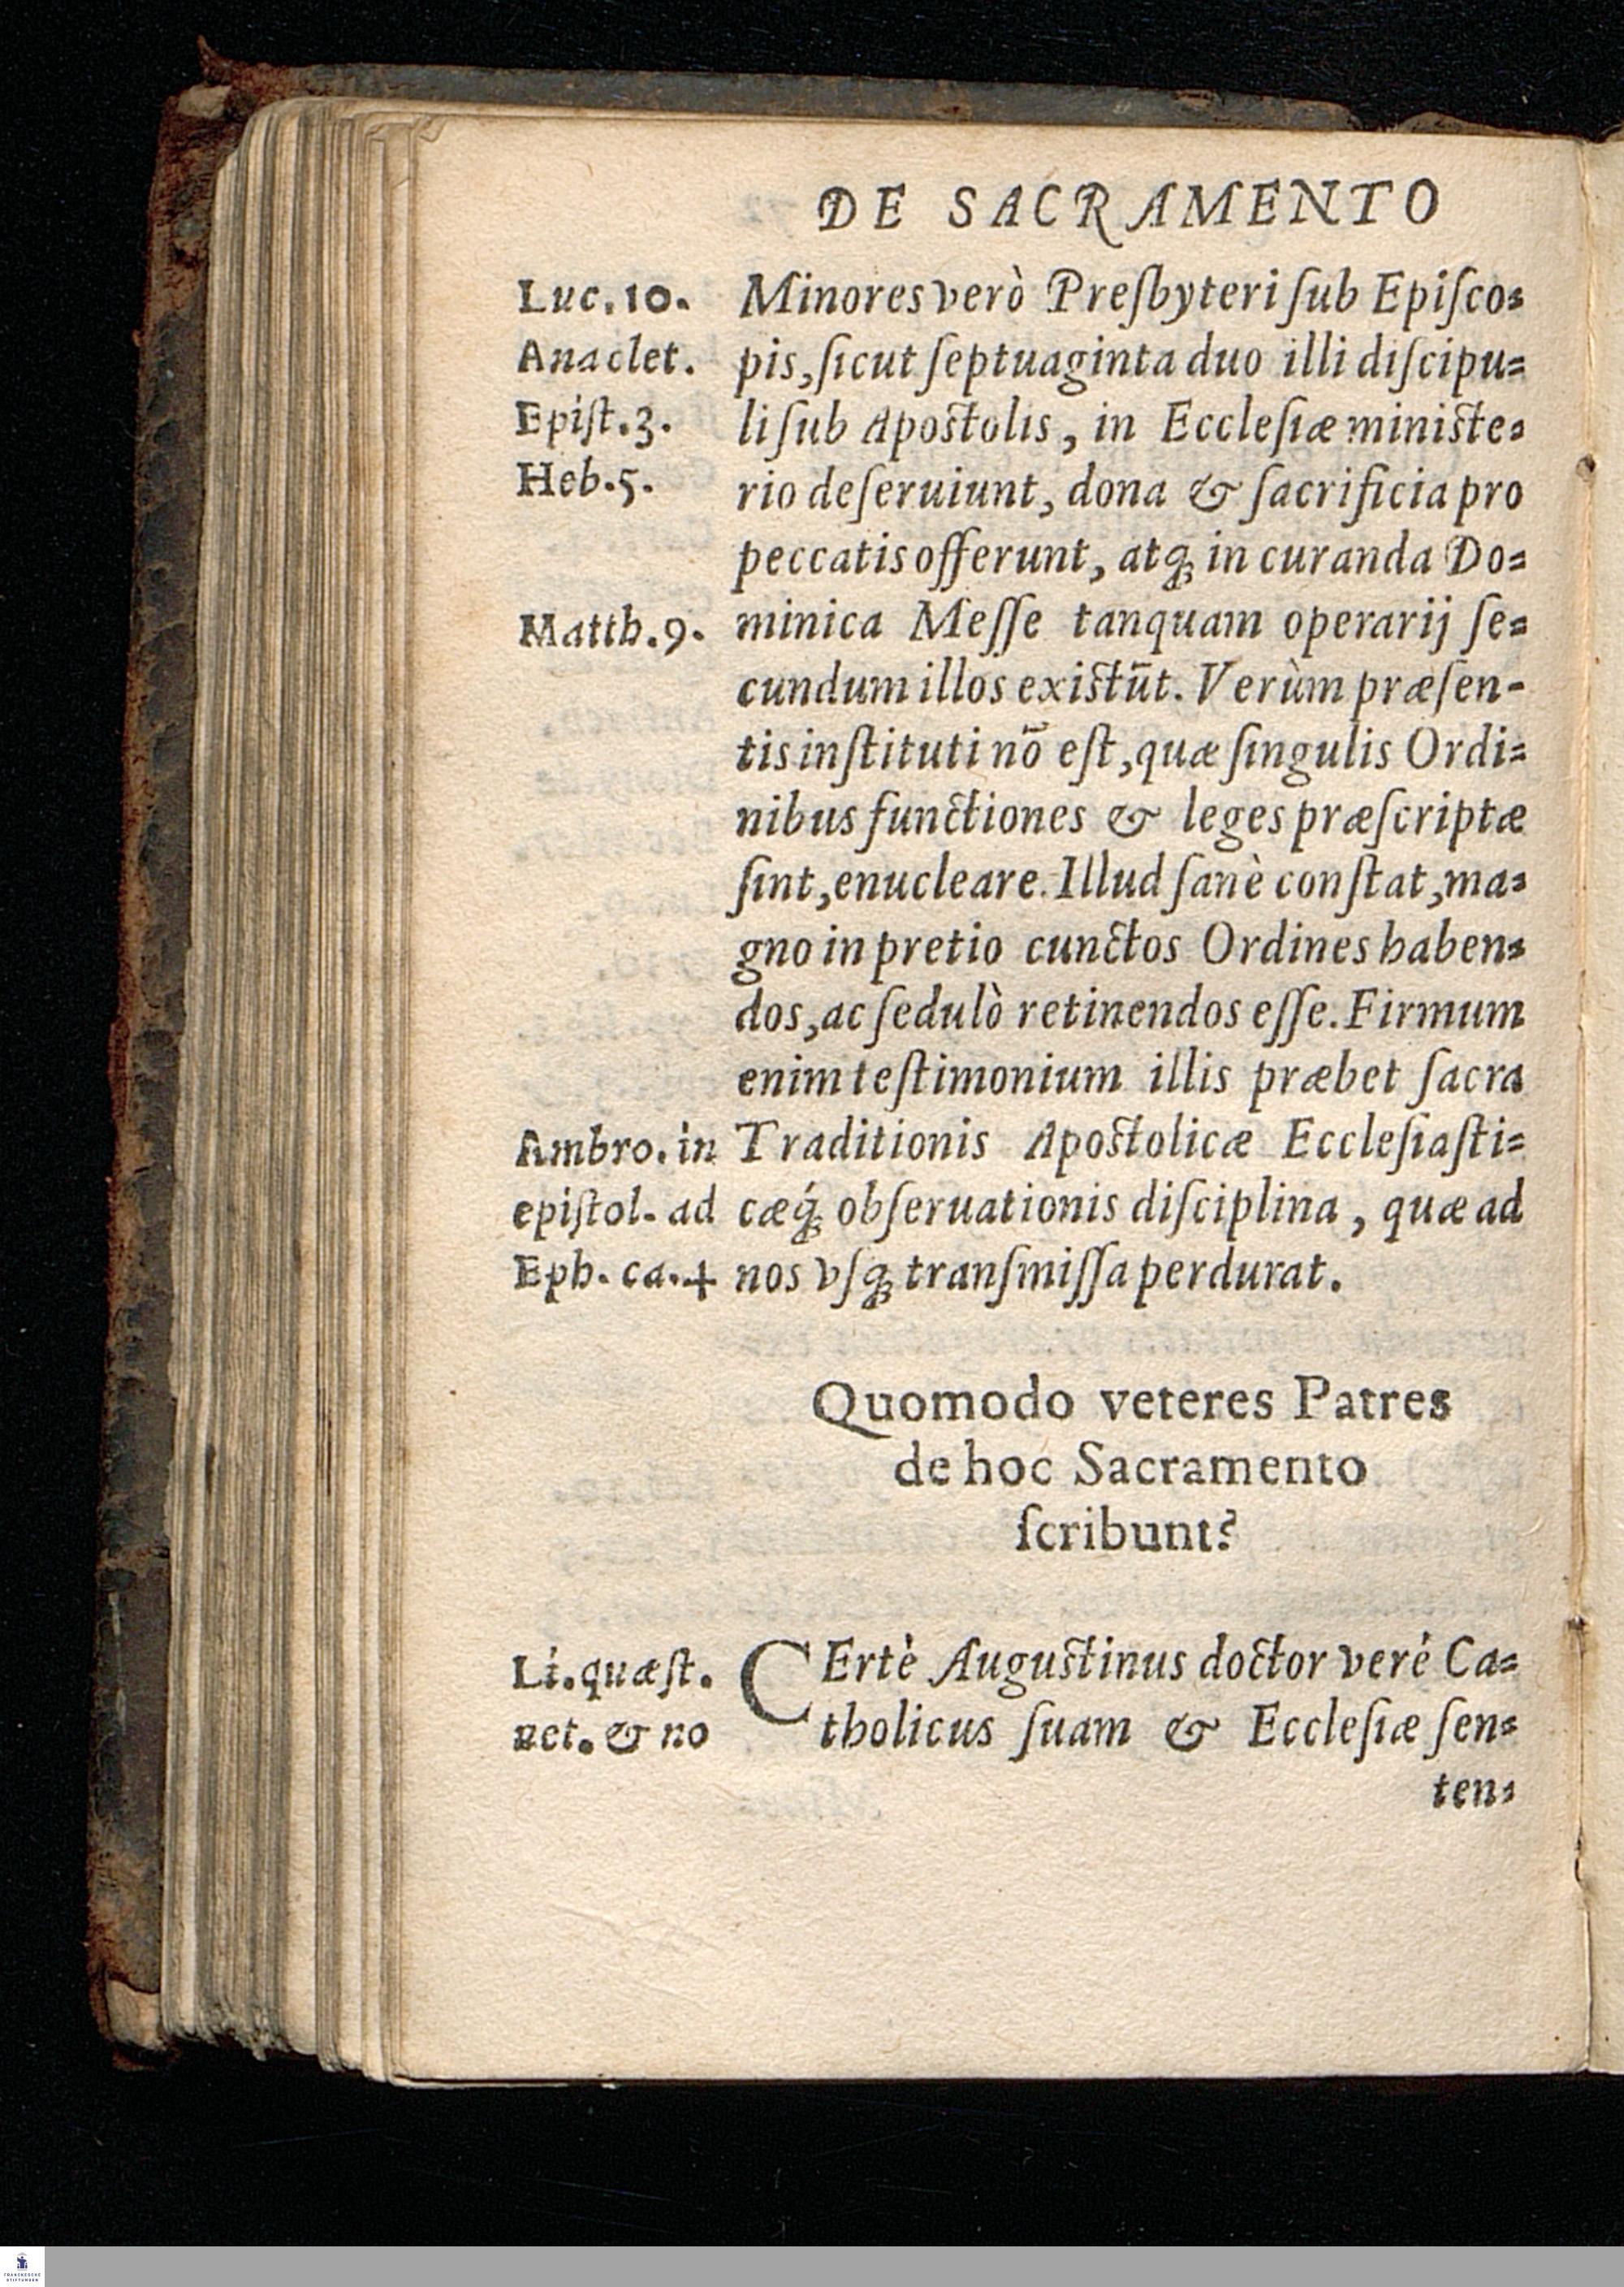 DE SACRAMENTO
Luc. 10.
Anaclet.
Epiſt. 3.
Heb. 5.
Matth. 9.
Minores verò Preſbyteri ſub Epiſco=
pis, ſicut ſeptuaginta duo illi diſcipu=
li ſub Apoſtolis, in Eccleſiæ miniſte=
rio deſeruiunt, dona & ſacrificia pro
peccatis offerunt, atq́; in curanda Do=
minica Meſſe tanquam operarij ſe=
cundum illos exiſtūt. Verùm præſen-
tis inſtituti nō eſt, quæ ſingulis Ordi=
nibus functiones & leges præſcriptæ
ſint, enucleare. Illud ſanè conſtat, ma=
gno in pretio cunctos Ordines haben=
dos, ac ſedulò retinendos eſſe. Firmum
enim teſtimonium illis præbet ſacra
Traditionis Apoſtolicæ Eccleſiaſti=
cæq́; obſeruationis diſciplina, quæ ad
nos vſq; tranſmiſſa perdurat.
Ambro. in
epiſtol. ad
Eph. ca. 4
Quomodo veteres Patres
de hoc Sacramento
ſcribunt?
Li. quæſt.
uet. & no
CErtè Auguſtinus doctor verè Ca=
tholicus ſuam & Eccleſiæ ſen=
ten=
FRANCKESCHE
STIFTUNGEN